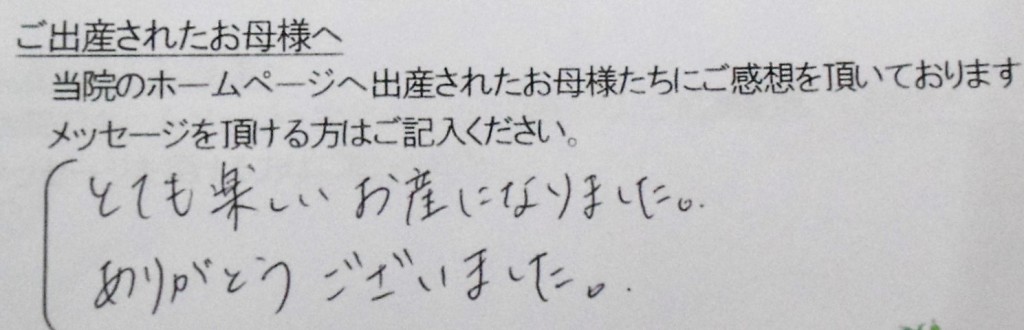 ご出産されたお母様へ
当院のホームページへ出産されたお母様たちにご感想を頂いております
メッセージを頂ける方はご記入ください。
とても楽しいお産になりました。
ありがとうございました。